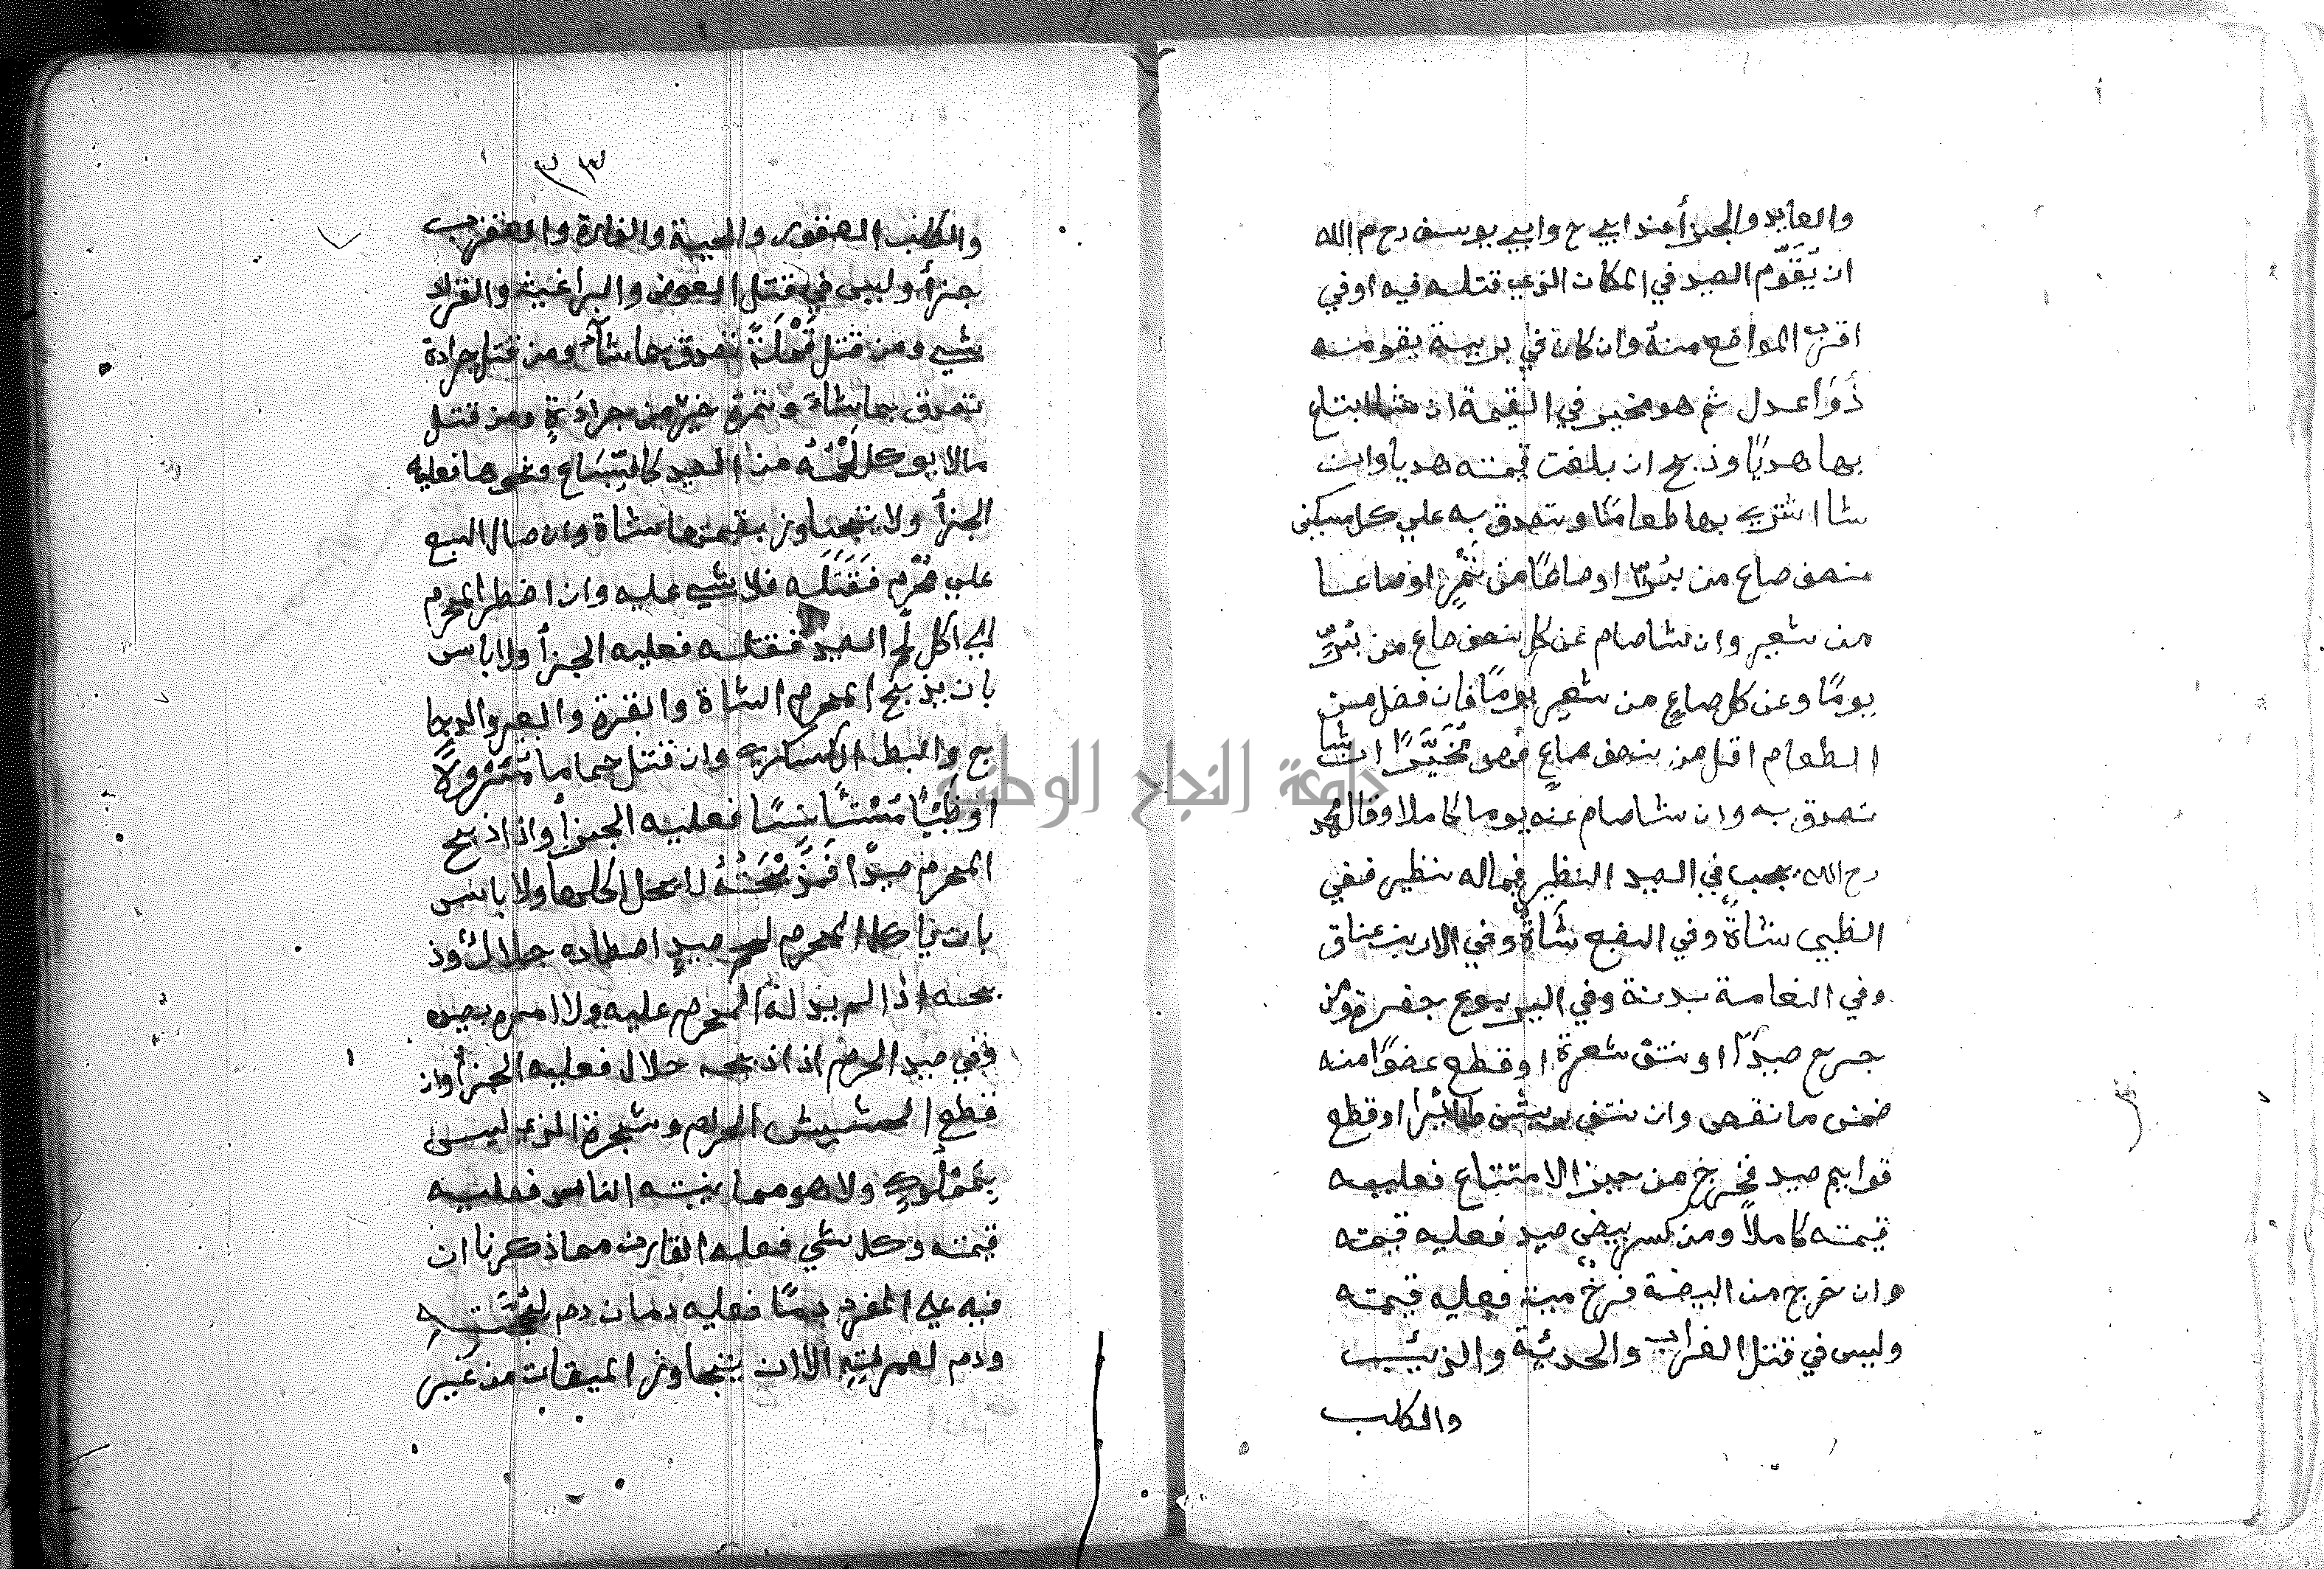 والعايد والجزأ عند ابي ح وابي يوسف رح م الله
ان يَقَوّم الصيد في المكان الذي قتله فيه او في
اقرب المواضع منه وان كان في برية يقومنه
ذَوَا عدل ثم هو مخير في القيمة ان شا ابتاع
بها هديًا وذبح ان بلغت قيمته هديا وان
شا اشترى بها طعامًا وتصدق به علي كل مسكين
نصف صاع من بُرٍّ او صاعًا من تَمْرٍ او صاعا
من شعير وان شا صام عن كل نصف صاع من بُرٍّ
يومًا وعن كل صاعٍ من شعير يومًا فان فضل من
الطعام اقل من نصف صاعٍ فهو مُخَيَّرًا ان شا
تصدق به وان شا صام عنه يوما كاملا وقال محمد
رح الله يجب في الصيد النظير فيما له نظير ففي
الظبي شاةً وفي الضبع شَاةٌ وفي الارنب عناق
وفي النعامة بدنة وفي اليربوع جفرة ومن
جرح صيدًا او نتف شعرة او قطع عضوًا منه
ضمن ما نقص وان نتف ريش طائرا او قطع
قوايم صيد فخرج من حيز الامتناع فعليه
قيمته كاملاً ومن كسر بيض صيد فعليه قيمته
وان خرج من البيضة فرخ ميت فعليه قيمته
وليس في قتل الغراب والحدئية والذئيب
والكلب
٣٣
والكلب العقور والحية والفارة والعقرب
جزأ وليس في قتل البعوض والبراغيث والقراد
شي ومن قتل قَمْلَةً تصدق بما شآء ومن قتل جرادة
تصدق بما شاء وتمرة خير من جرادَةٍ ومن قتل
مالا يوكل لَحْمُه من الصيد كالسِّبَاع ونحوها فعليه
الجزأ ولا يتجاوز بقيمتها شاة وان صال السبع
علي مُحْرِم فَقَتَلَه فلا شي عليه وان اضطر المحرم
الي اكل لحم الصيد فقتله فعليه الجزأ ولا باس
بان يذبح المحرم الشاة والبقرة والبعير والدجا
ج والبط الكسكري وان قتل حماما مُسَرْوَلاً
او ظَبْيًا مُسْتَأنِسًا فعليه الجزأ واذا ذبح
المحرم صيدًا فَذَبِيْحَتُهُ لا يحل اكلها ولا باس
بان ياكل المحرم لحم صيدٍ اصطاده حلالٌ وذ
بحه اذا لم يدله المحرم عليه ولا امره بصيده
وفي صيد الحرم اذا ذبحه حلال فعليه الجزأ وان
قطع الحشيش الحرام وشجرة الذي ليس
بِمَمْلُوكٍ ولا هو مما ينبته الناس فعليه
قيمته وكل شي فعله القارن مما ذكرنا ان
فيه علي المفرد دمًا فعليه دمان دم لِحَجَّتِهِ
ودم لعمرته الا ان يتجاوز الميقات من غير
جامعة النجاح الوطنية